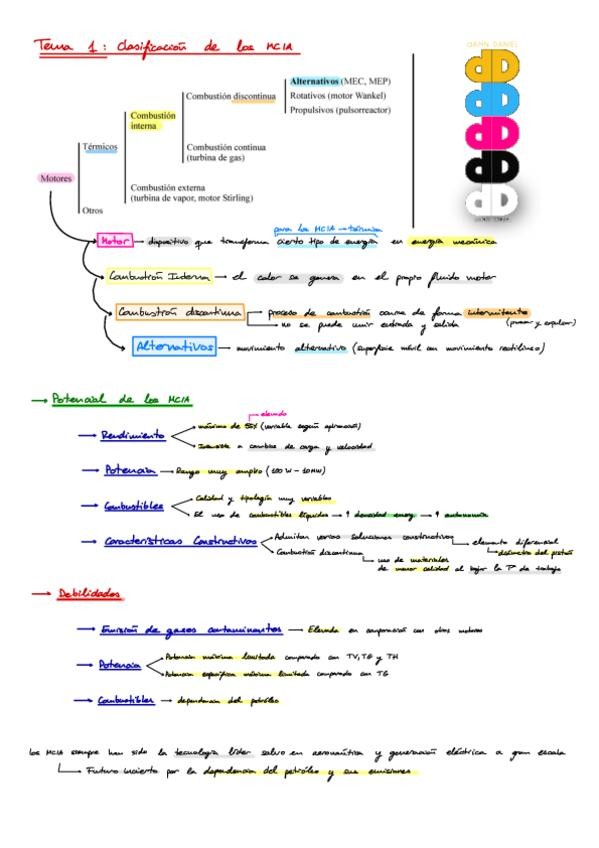 Tema 1: Clasificación de los MCIA
DAMN DANIEL
Alternativos (MEC, MEP)
Combustión discontinua
Rotativos (motor Wankel)
Propulsivos (pulsorreactor)
Combustión interna
Térmicos
Combustión continua (turbina de gas)
Motores
Combustión externa (turbina de vapor, motor Stirling)
Otros
para los MCIA → térmica
Motor → dispositivo que transforma cierto tipo de energía en energía mecánica
Combustión Interna → el calor se genera en el propio fluido motor
Combustión discontinua → proceso de combustión ocurre de forma intermitente
→ no se puede unir entrada y salida
Alternativos → movimiento alternativo (superficie móvil con movimiento rectilíneo)
→ Potencial de los MCIA
→ elevado
→ Rendimiento
máximo de 55% (variable según aplicación)
Insensible a cambios de carga y velocidad
→ Potencia → Rango muy amplio (100 W - 10MW)
→ Combustibles
Calidad y tipología muy variables
El uso de combustibles líquidos → ↑ densidad energ → ↑ autonomía
→ Características Constructivas
Admiten varias soluciones constructivas → elemento diferencial
→ diámetro del pistón
Combustión discontinua
→ uso de materiales
de menor calidad al bajar la Tª de trabajo
→ Debilidades
→ Emisión de gases contaminantes → Elevada en comparación con otros motores
→ Potencia
Potencia máxima limitada comparado con TV, TG y TH
Potencia específica máxima limitada comparado con TG
→ Combustibles → dependencia del petróleo
Los MCIA siempre han sido la tecnología líder salvo en aeronáutica y generación eléctrica a gran escala
→ Futuro incierto por la dependencia del petróleo y sus emisiones